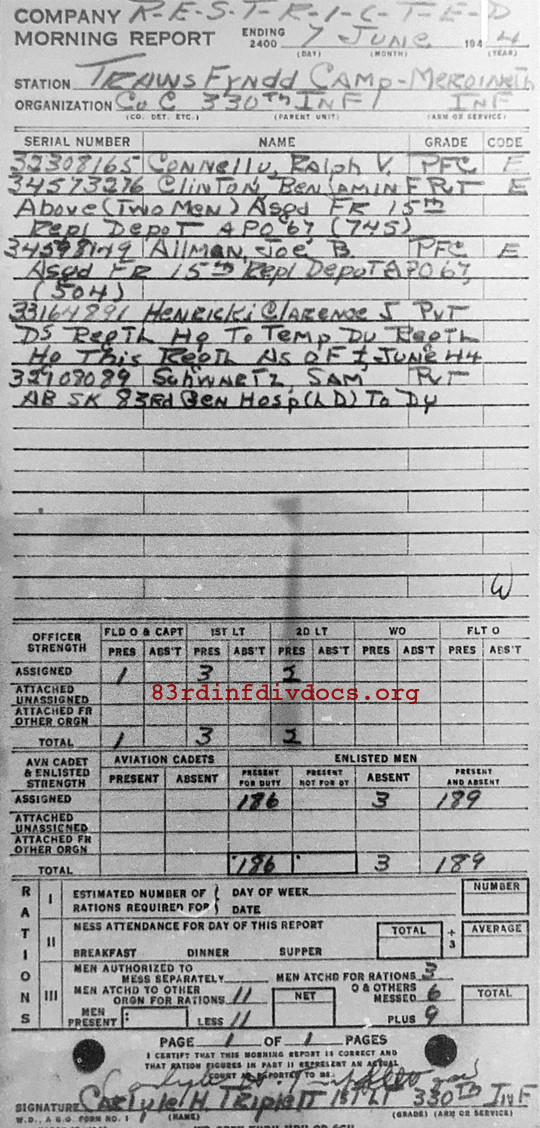 COMPANY R-E-S-T-R-I-C-T-E-D
MORNING REPORT ENDING 2400 7 JUNE 1944
(DAY) (MONTH) (YEAR)
STATION TRAWSFYNDD CAMP-MEROINETH
ORGANIZATION Co C 330TH INF INF
(CO. DET. ETC.) (PARENT UNIT) (ARM OR SERVICE)
SERIAL NUMBER NAME GRADE CODE
32308165 CONNELLY, RALPH V. PFC E
34573276 CLINTON, BENJAMIN F PVT E
ABOVE (TWO MEN) ASGD FR 15TH
REPL DEPOT APO 67 (745)
34598149 ALLMAN, JOE B. PFC E
ASGD FR 15TH REPL DEPOT APO 67
(504)
33164891 HENRICKI CLARENCE J PVT
DS REGTL HQ TO TEMP DU REGTL
HQ THIS REGTL AS OF 1 JUNE 44
32908089 SCHWARTZ, SAM PVT
AB SK 83RD GEN HOSP (LD) TO DY
W
OFFICER STRENGTH FLD O & CAPT 1ST LT 2D LT WO FLT O
PRES ABS'T PRES ABS'T PRES ABS'T PRES ABS'T PRES ABS'T
ASSIGNED 1 3 2
ATTACHED UNASSIGNED
83rdinfdivdocs.org
ATTACHED FR OTHER ORGN
TOTAL 1 3 2
AVN CADET & ENLISTED STRENGTH AVIATION CADETS ENLISTED MEN
PRESENT ABSENT PRESENT FOR DUTY PRESENT NOT FOR DY ABSENT PRESENT AND ABSENT
ASSIGNED 186 3 189
ATTACHED UNASSIGNED
ATTACHED FR OTHER ORGN
TOTAL 186 3 189
RATIONS
I ESTIMATED NUMBER OF RATIONS REQUIRED FOR { DAY OF WEEK DATE NUMBER
II MESS ATTENDANCE FOR DAY OF THIS REPORT TOTAL ÷ 3 AVERAGE
BREAKFAST DINNER SUPPER
III MEN AUTHORIZED TO MESS SEPARATELY MEN ATCHD FOR RATIONS 3
MEN ATCHD TO OTHER ORGN FOR RATIONS 11 NET O & OTHERS MESSED 6 TOTAL
MEN PRESENT : LESS 11 PLUS 9
PAGE 1 OF 1 PAGES
I CERTIFY THAT THIS MORNING REPORT IS CORRECT AND
THAT RATION FIGURES IN PART II REPRESENT AN ACTUAL
COUNT AS REPORTED TO ME.
SIGNATURE CARLYLE H TRIPLETT 1ST LT 330TH INF
W.D., A.G.O. FORM NO. 1 (NAME) (GRADE) (ARM OR SERVICE)